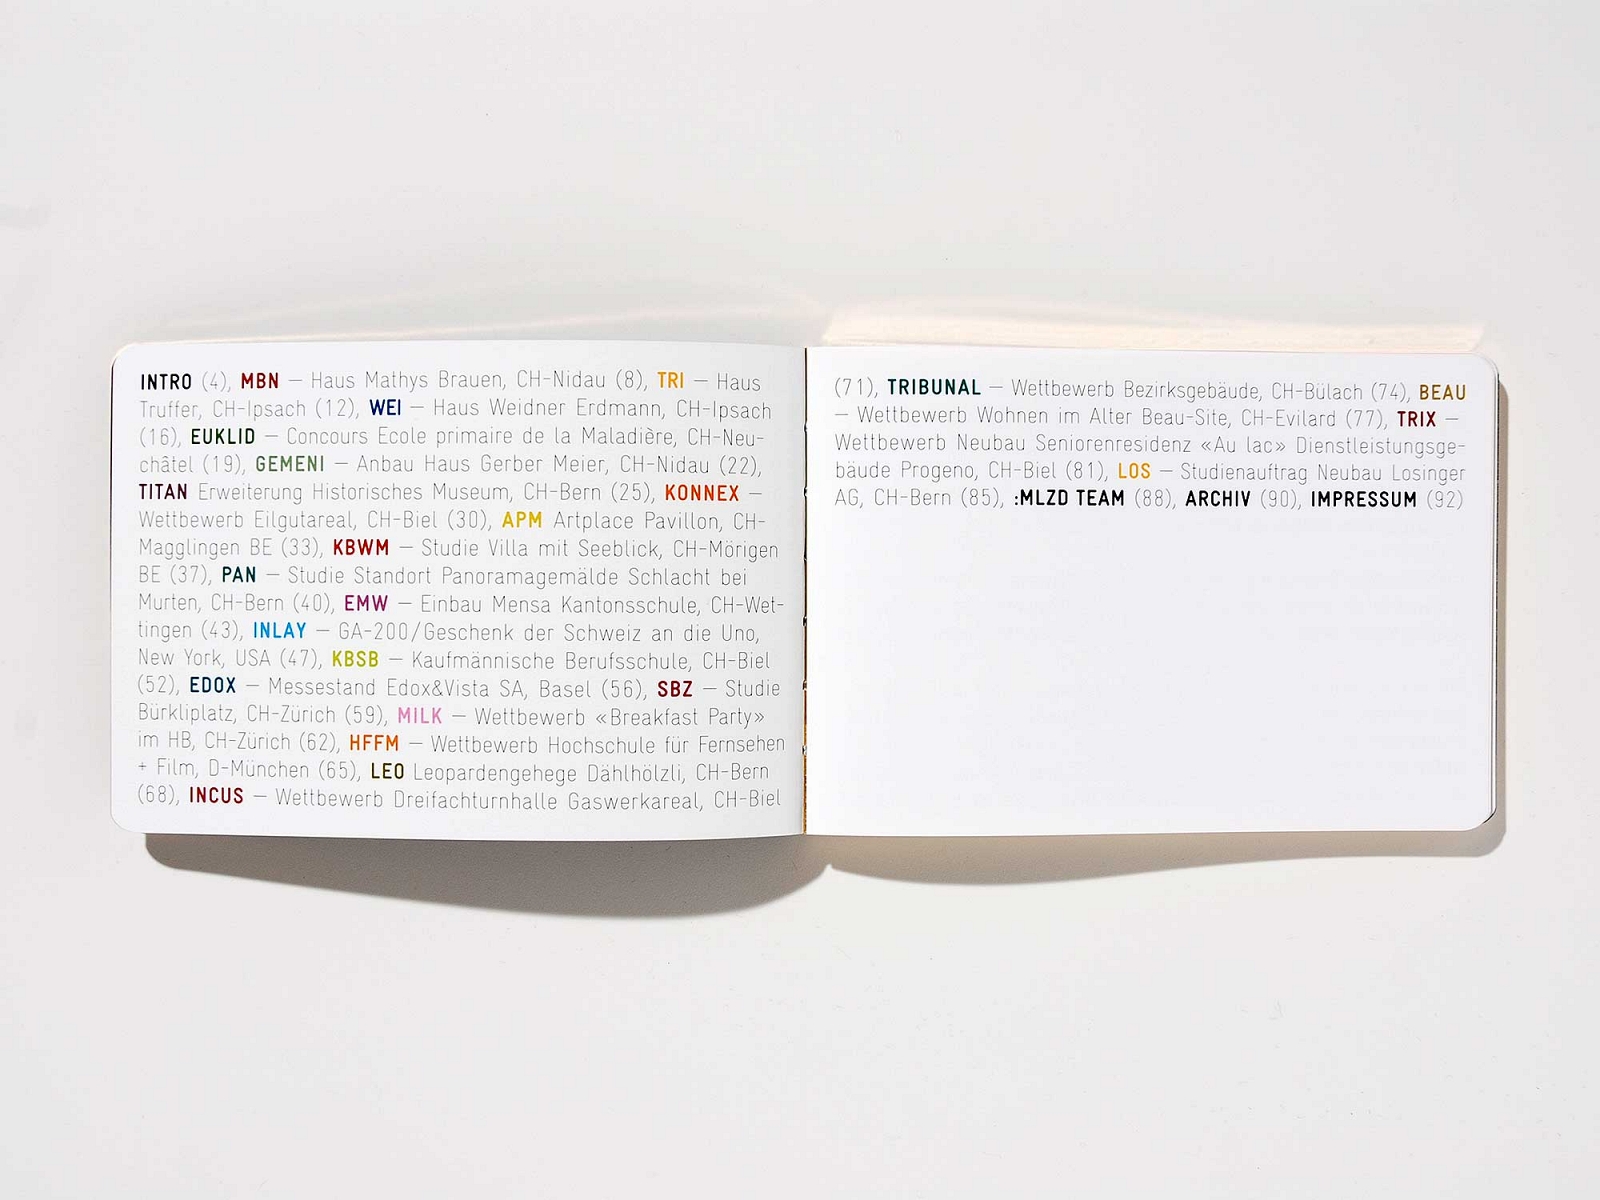 INTRO (4), MBN – Haus Mathys Brauen, CH-Nidau (8), TRI – Haus
Truffer, CH-Ipsach (12), WEI – Haus Weidner Erdmann, CH-Ipsach
(16), EUKLID – Concours Ecole primaire de la Maladière, CH-Neu-
châtel (19), GEMENI – Anbau Haus Gerber Meier, CH-Nidau (22),
TITAN Erweiterung Historisches Museum, CH-Bern (25), KONNEX –
Wettbewerb Eilgutareal, CH-Biel (30), APM Artplace Pavillon, CH-
Magglingen BE (33), KBWM – Studie Villa mit Seeblick, CH-Mörigen
BE (37), PAN – Studie Standort Panoramagemälde Schlacht bei
Murten, CH-Bern (40), EMW – Einbau Mensa Kantonsschule, CH-Wet-
tingen (43), INLAY – GA-200/Geschenk der Schweiz an die Uno,
New York, USA (47), KBSB – Kaufmännische Berufsschule, CH-Biel
(52), EDOX – Messestand Edox&Vista SA, Basel (56), SBZ – Studie
Bürkliplatz, CH-Zürich (59), MILK – Wettbewerb «Breakfast Party»
im HB, CH-Zürich (62), HFFM – Wettbewerb Hochschule für Fernsehen
+ Film, D-München (65), LEO Leopardengehege Dählhölzli, CH-Bern
(68), INCUS – Wettbewerb Dreifachturnhalle Gaswerkareal, CH-Biel
(71), TRIBUNAL – Wettbewerb Bezirksgebäude, CH-Bülach (74), BEAU
– Wettbewerb Wohnen im Alter Beau-Site, CH-Evilard (77), TRIX –
Wettbewerb Neubau Seniorenresidenz «Au lac» Dienstleistungsge-
bäude Progeno, CH-Biel (81), LOS – Studienauftrag Neubau Losinger
AG, CH-Bern (85), :MLZD TEAM (88), ARCHIV (90), IMPRESSUM (92)